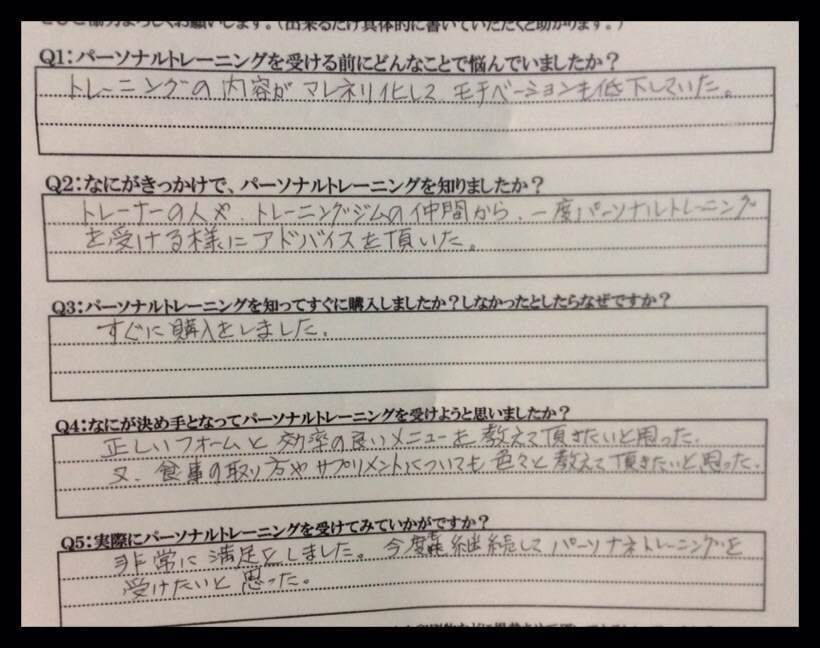 ご協力よろしくお願いします。（出来るだけ具体的に書いていただくと助かります。）
Q1：パーソナルトレーニングを受ける前にどんなことで悩んでいましたか？
トレーニングの内容がマレネリ化して、モチベーションも低下していた。
Q2：なにがきっかけで、パーソナルトレーニングを知りましたか？
トレーナーの人や、トレーニングジムの仲間から、一度パーソナルトレーニング
を受ける様にアドバイスを頂いた。
Q3：パーソナルトレーニングを知ってすぐに購入しましたか？しなかったとしたらなぜですか？
すぐに購入をしました。
Q4：なにが決め手となってパーソナルトレーニングを受けようと思いましたか？
正しいフォームと効率の良いメニューを教えて頂きたいと思った。
又、食事の取り方やサプリメントについても色々と教えて頂きたいと思った。
Q5：実際にパーソナルトレーニングを受けてみていかがですか？
非常に満足をしました。今度 継続してパーソナネトレーニングを
受けたいと思った。